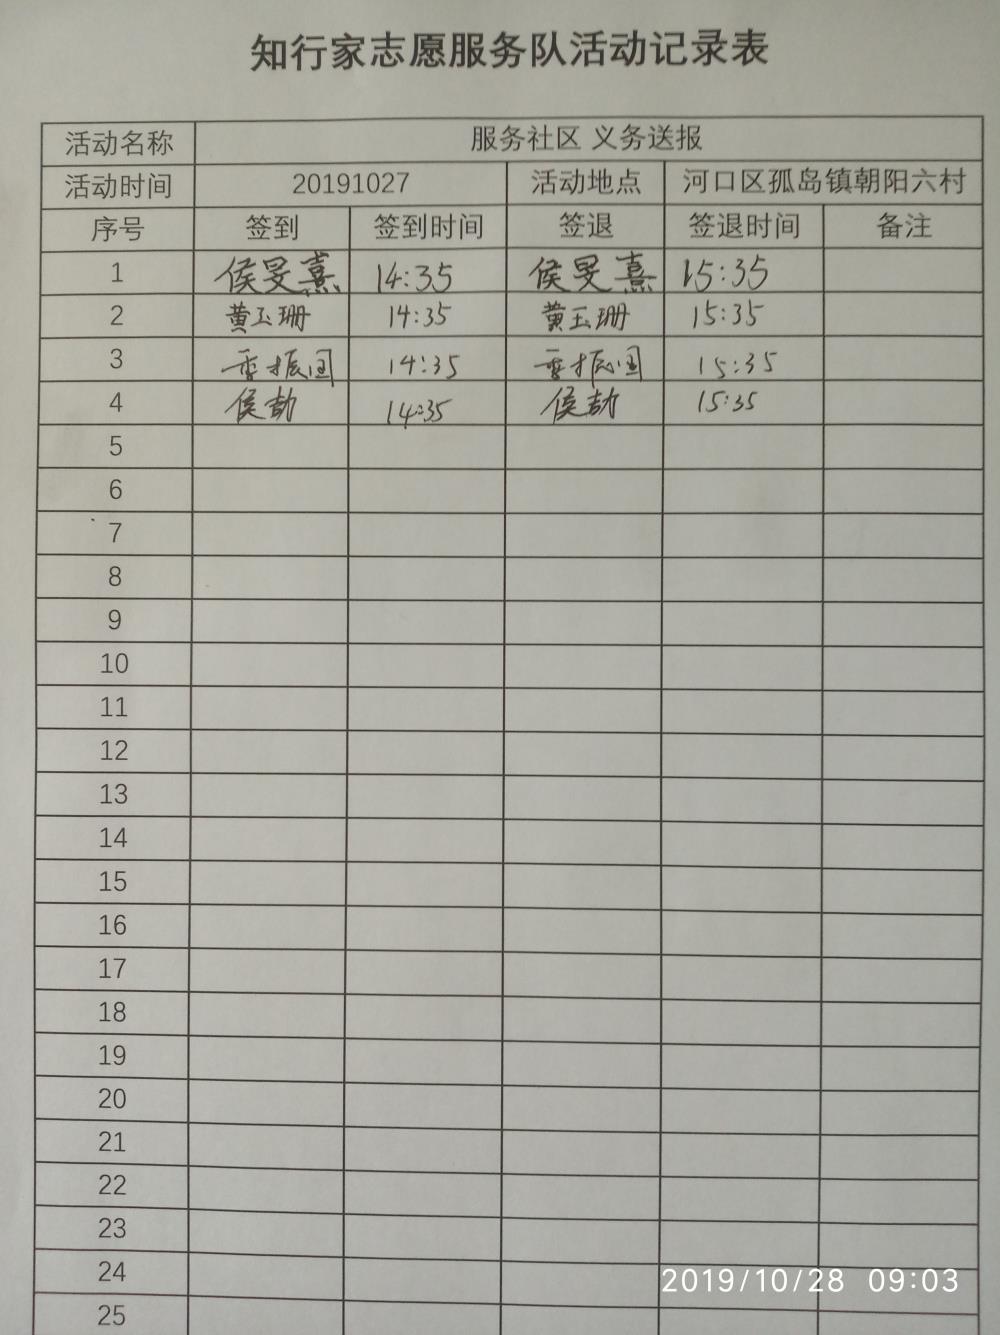 知行家志愿服务队活动记录表
活动名称 服务社区 义务送报
活动时间 20191027 活动地点 河口区孤岛镇朝阳六村
序号 签到 签到时间 签退 签退时间 备注
1 侯旻熹 14:35 侯旻熹 15:35
2 黄玉珊 14:35 黄玉珊 15:35
3 振国 14:35 振国 15:35
4 侯 14:35 侯 15:35
5
6
7
8
9
10
11
12
13
14
15
16
17
18
19
20
21
22
23
24
25
2019/10/28 09:03